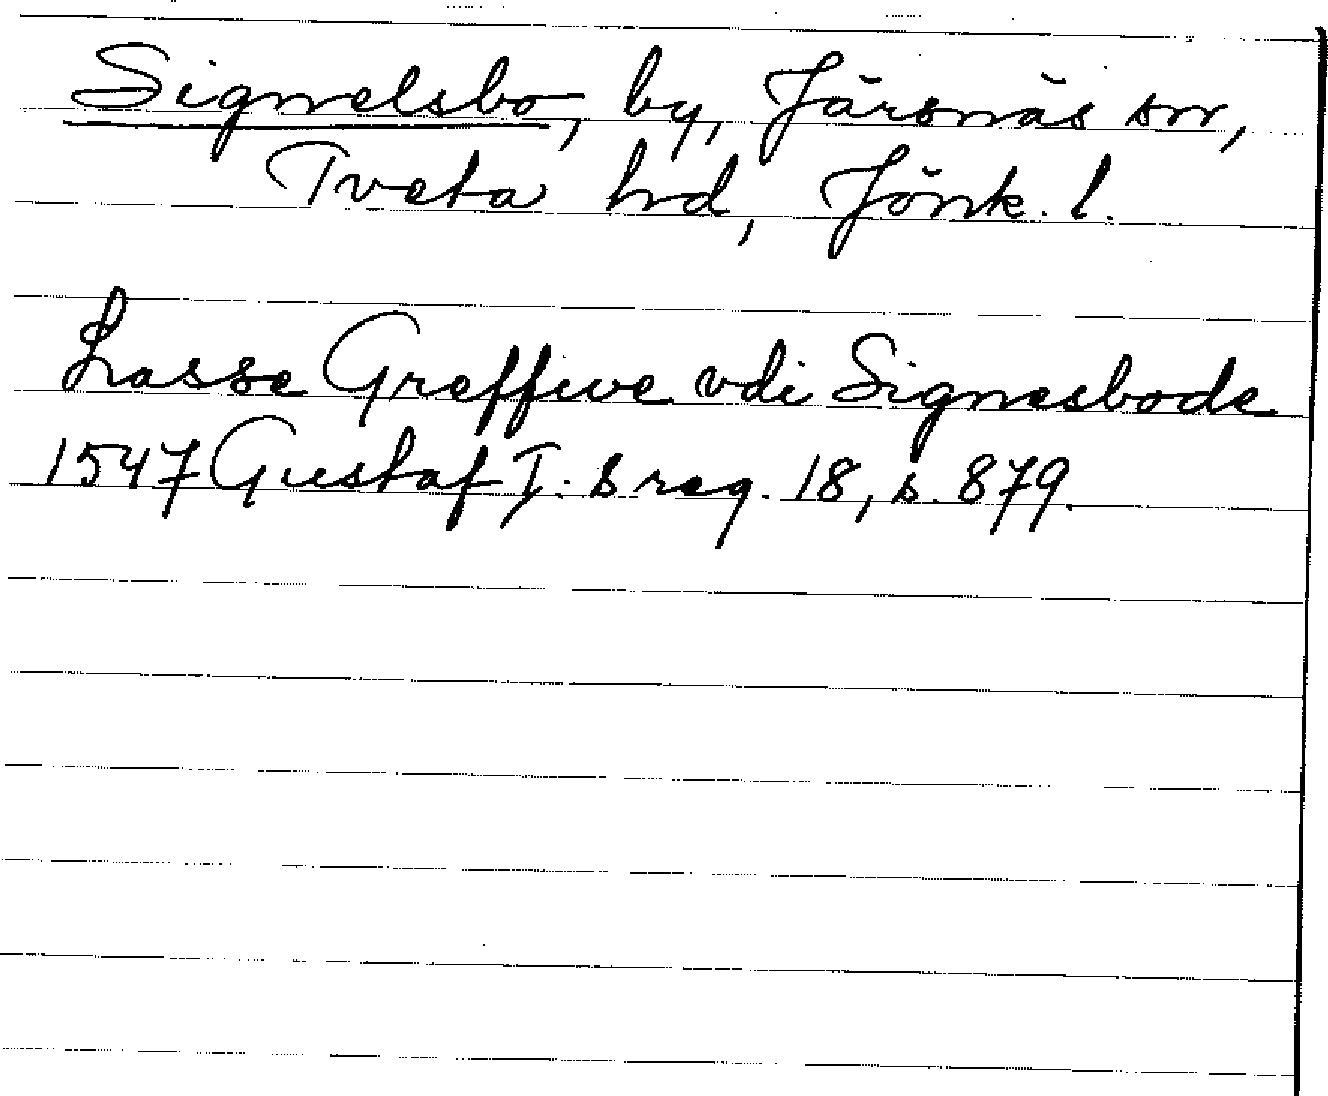 Signelsbo, by, Järsnäs sn,
Tveta hd, Jönk. l.
Lasse Greffwe vdi Signesbode
1547 Gustaf I:s reg. 18, s. 879.